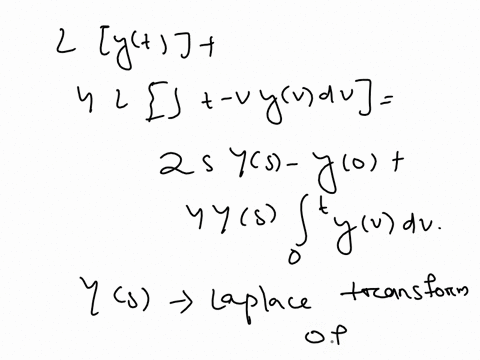 2 [y(t)] +
4 2 [∫ t-v y(v) dv] =
2 s Y(s) - y(0) +
4Y(s) ∫₀ᵗ y(v) dv.
Y(s) → Laplace transform
of